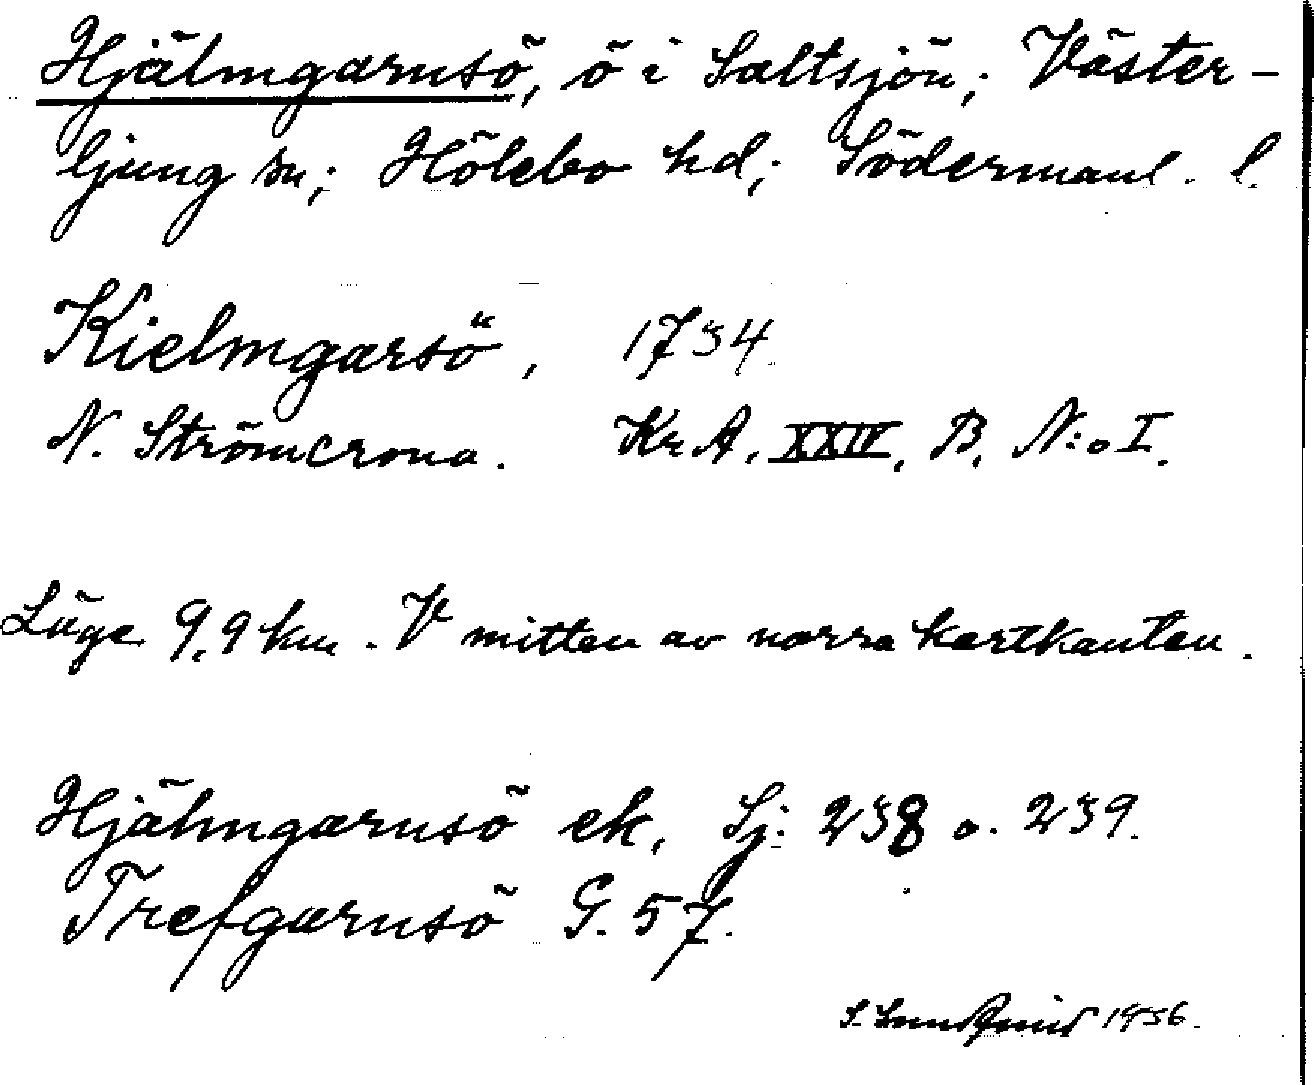 Hjälmgarnsö, ö i Saltsjön; Väster-
ljung sn; Hölebo hd; Södermanl. l.
Kielmgarsö, 1734
N. Strömcrona. Kr. A. XXIV, B, N:o I.
Läge 9,9 km. V mitten av norra kartkanten.
Hjälmgarnsö ek, Sj: 238 o. 239.
Trefgarnsö G. 57.
S. 1936.